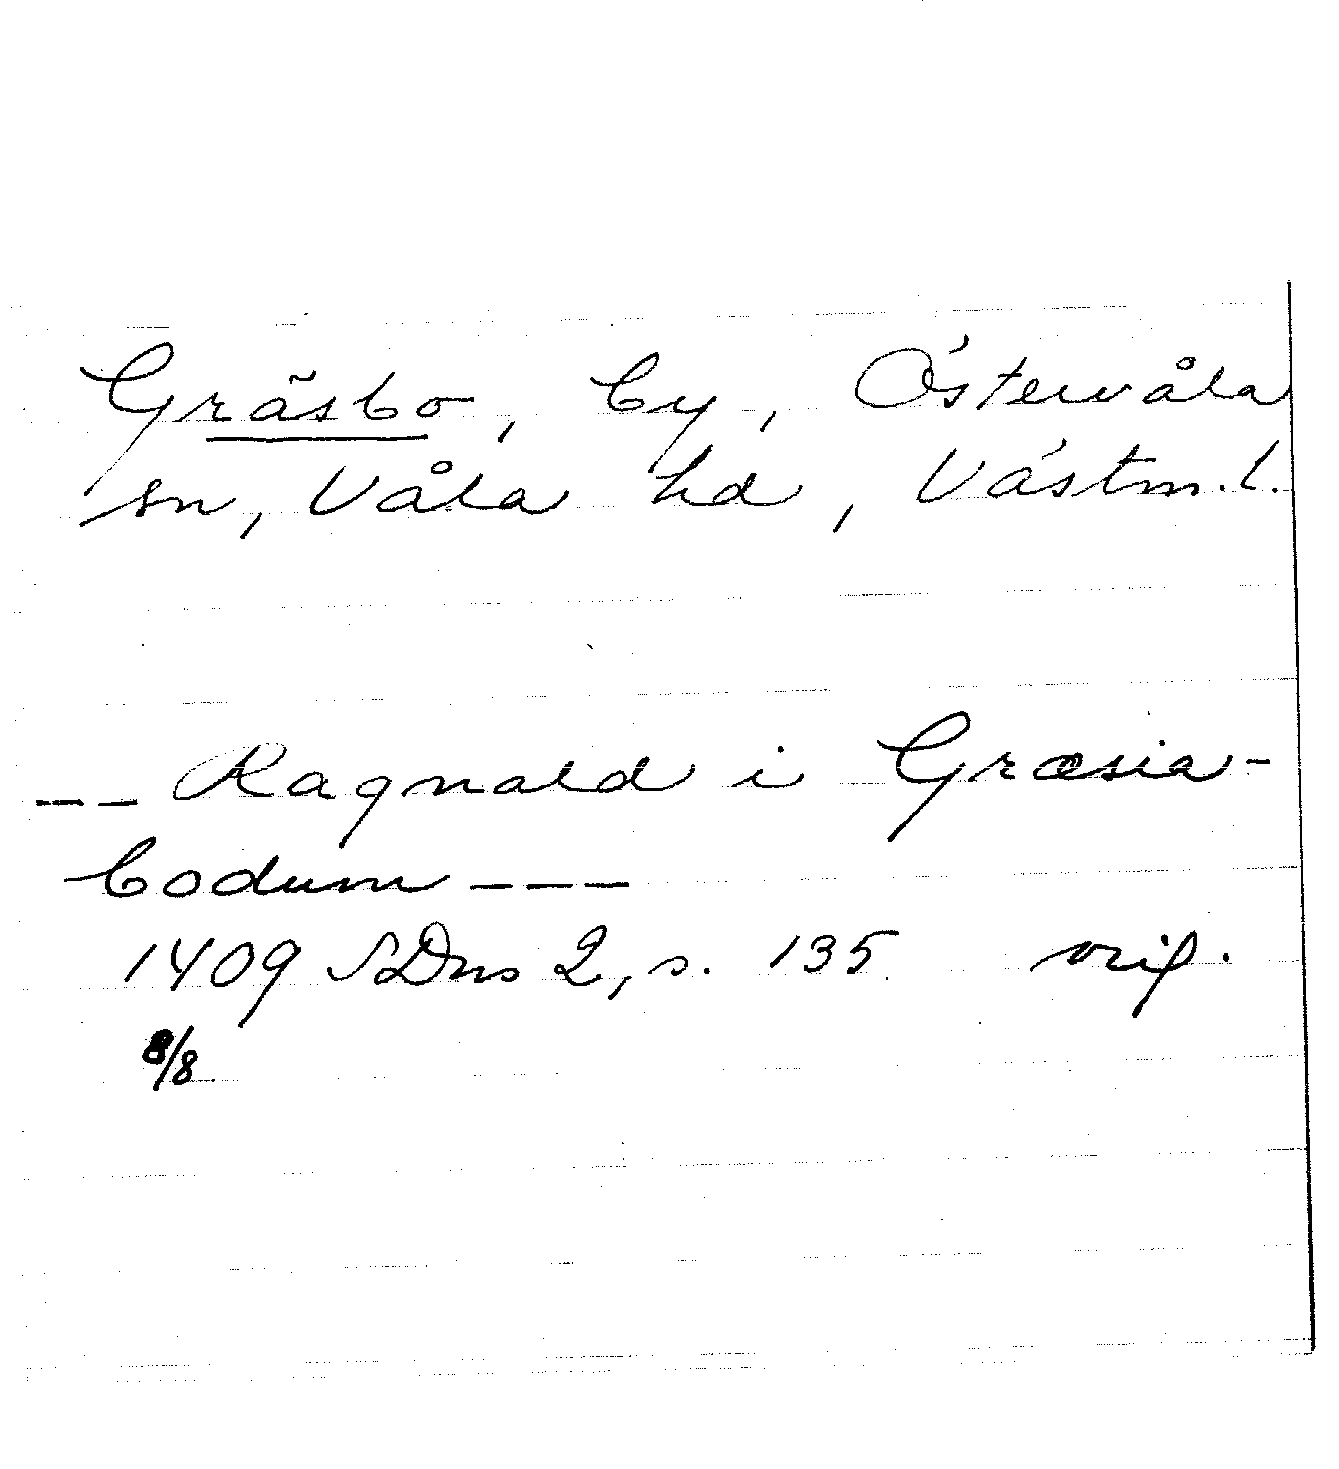 Gräsbo, by, Östervåla
sn, Våla hd, Västm. l.
--- Ragnald i Græsia-
bodum ---
1409 SDns 2, s. 135 orig.
8/8